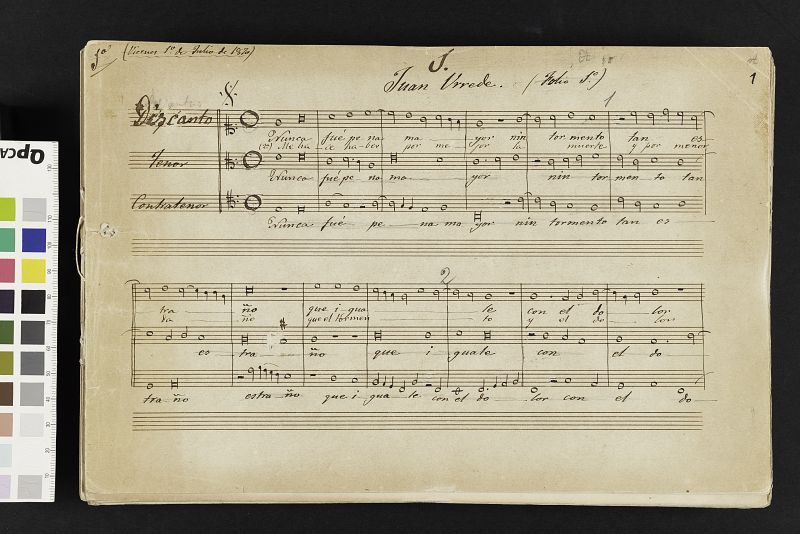 1º (Viernes 1º de Julio de 1870)
1.
Juan Urrede. (Folio 1º)
1
1
Discanto
Nunca fué pe na ma yor nin tor mento tan es
(2ª) Me ha de ha ber por me jor la muerte y por menor
Tenor
Nunca fué pe na ma yor nin tor men to tan
Contratenor
Nunca fué pe na ma yor nin tormento tan es
2
tra ño que i gua le con el do lor
da ño que el tormen to y el do lor
es tra ño que i guale con el do
tra ño estra ño que i gua le con el do lor con el do
QPCA